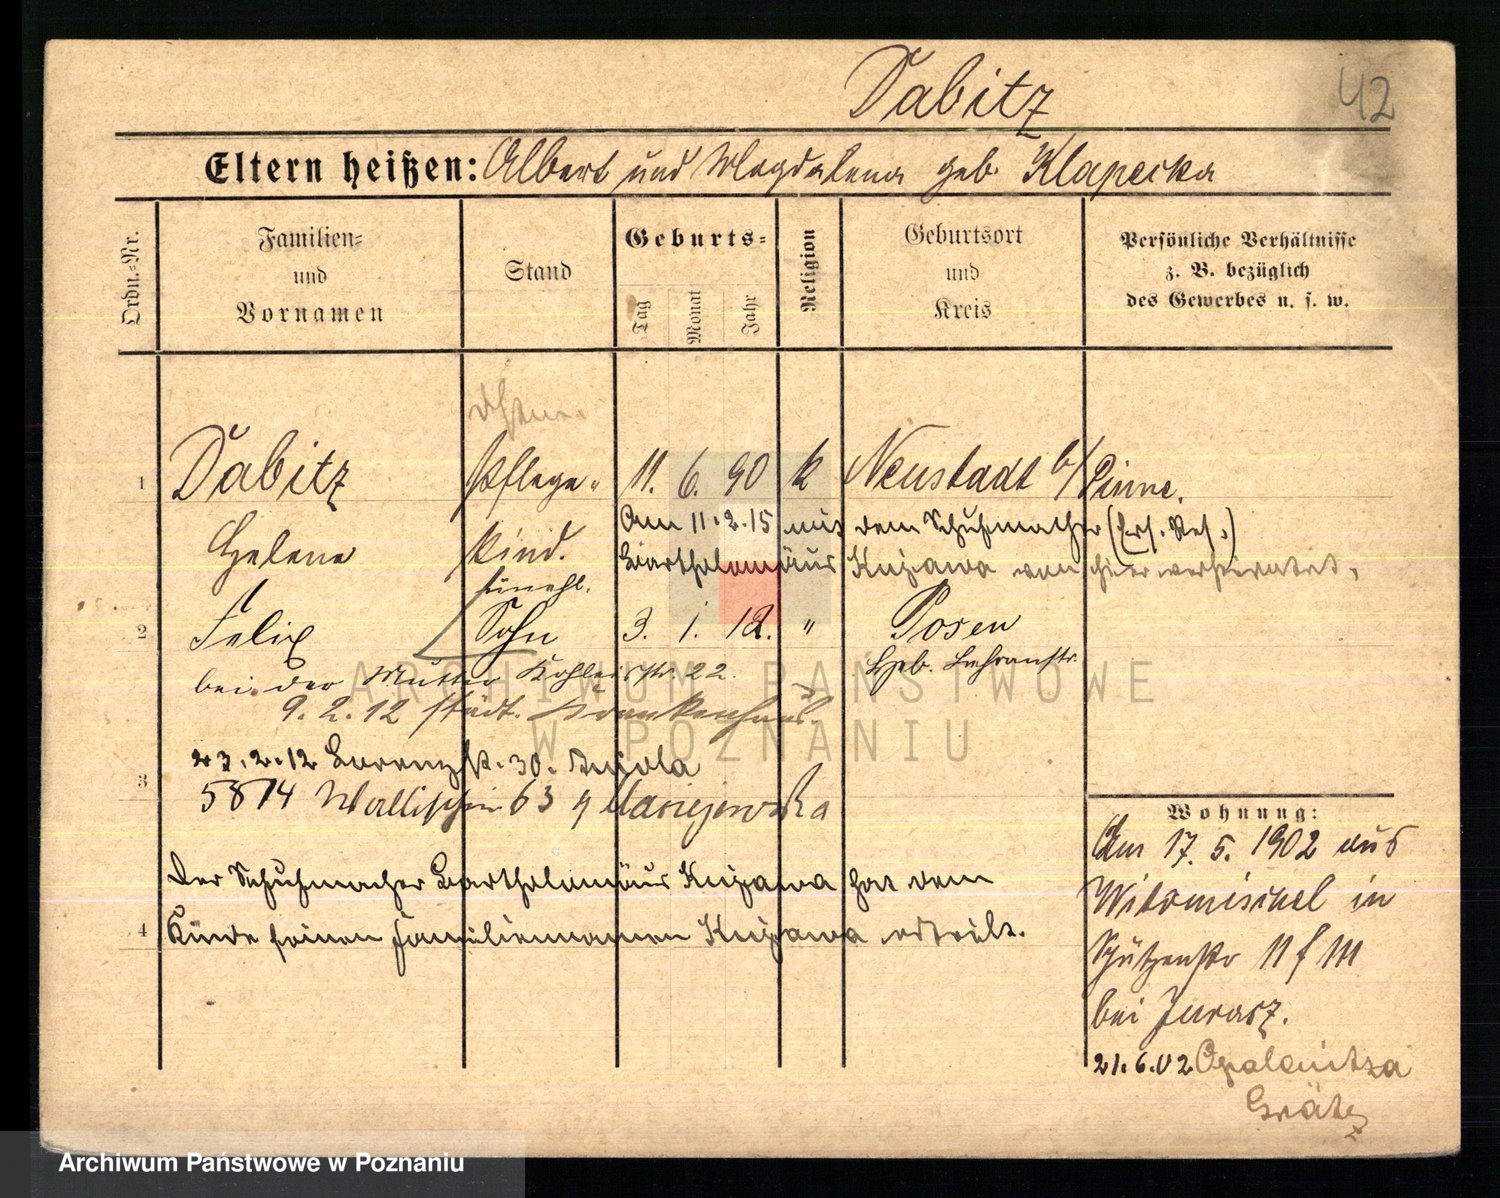 Dabitz
42
Eltern heißen: Albert und Magdalena geb. Klapecka
Ordn.-Nr.
Familien-
und
Vornamen
Stand
Geburts-
Tag
Monat
Jahr
Religion
Geburtsort
und
Kreis
Persönliche Verhältnisse
z. B. bezüglich
des Gewerbes u. s. w.
1 Dabitz Pflege- 11. 6. 90 k Neustadt b/Pinne.
Am 11.2.15 mit dem Schuhmacher (Ers. Res.)
Helene kind.
Bartholomäus Kujawa von hier verheiratet.
unehl.
2 Felix Sohn 3. 1. 12. " Posen
Heb. Lehranst.
bei der Mutter 22.
9.2.12 städt. Krankenhaus
23.2.12 30.
3
5814 Wallischei 63 Maciejewska
Der Schuhmacher Bartholomäus Kujawa hat dem
4 Kinde seinen Familiennamen Kujawa erteilt.
Wohnung:
Am 17. 5. 1902 aus
Witomischel in
Schützenstr 11 f III
bei Jurasz.
21.6.02 Opalenitza
Grätz
ARCHIWUM PAŃSTWOWE
W POZNANIU
Archiwum Państwowe w Poznaniu